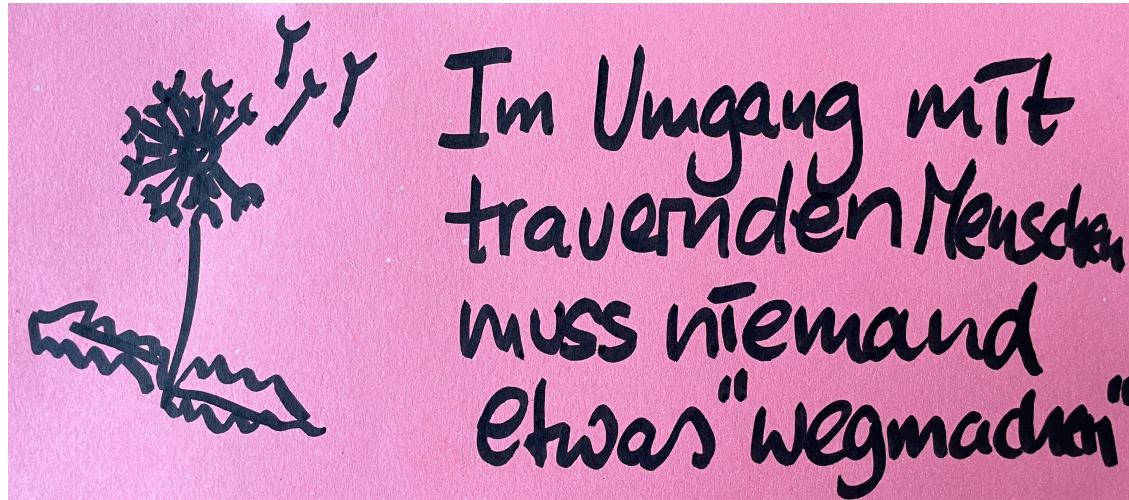 Im Umgang mit
trauernden Menschen
muss niemand
etwas "wegmachen"